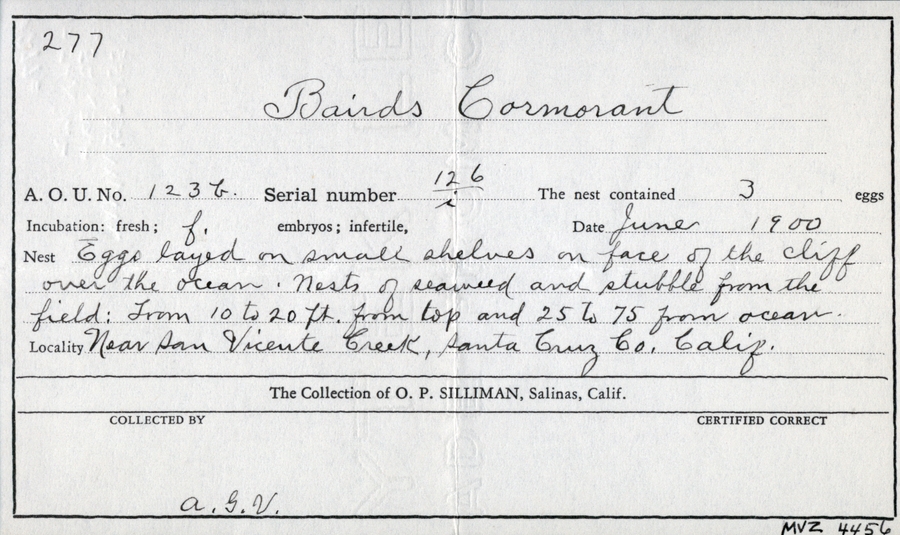 277
Bairds Cormorant
A. O. U. No. 123b. Serial number 126/i The nest contained 3 eggs
Incubation: fresh; f. embryos; infertile, Date June 1900
Nest Eggs layed on small shelves on face of the cliff
over the ocean. Nests of seaweed and stubble from the
field: From 10 to 20 ft. from top and 25 to 75 from ocean.
Locality Near San Vicente Creek, Santa Cruz Co. Calif.
The Collection of O. P. SILLIMAN, Salinas, Calif.
COLLECTED BY CERTIFIED CORRECT
a. G. V.
MVZ 4456